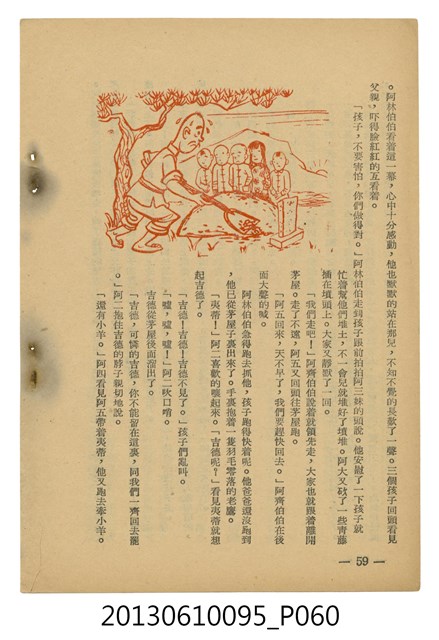 。阿林伯伯看着這一幕，心中十分感動，他也默默的站在那兒，不知不覺的長歎了一聲。三個孩子回頭看見
父親，吓得臉紅紅的互看着。
「孩子，不要害怕，你們做得對。」阿林伯伯走到孩子跟前拍拍阿三妹的頭說。他安慰了一下孩子就
忙着幫他們堆土，不一會兒就堆好了墳堆。阿大又砍了一些靑藤
插在墳頭上。大家又靜默了一回。
「我們走吧！」阿齊伯伯說着就領先走，大家也就跟着離開
茅屋。走了不遠，阿五又回頭往茅屋跑。
「阿五回來，天不早了，我們要趕快回去。」阿齊伯伯在後
面大聲的喊。
阿林伯伯急得跑去抓他，孩子跑得快着呢。他爸爸還沒跑到
，他已從茅屋子裏出來了。手裏抱着一隻羽毛零落的老鷹。
「夷蒂！」阿二喜歡的嚷起來。「吉德呢？」看見夷蒂就想
起吉德了。
「吉德！吉德！吉德不見了。」孩子們亂叫。
「噓，噓，噓！」阿二吹口哨。
吉德從茅屋後面溜出了。
「吉德，可憐的吉德，你不能留在這裏，同我們一齊回去罷
。」阿二抱住吉德的脖子親切地說。
「還有小羊。」阿四看見阿五帶着夷蒂，他又跑去牽小羊。
— 59 —
20130610095_P060